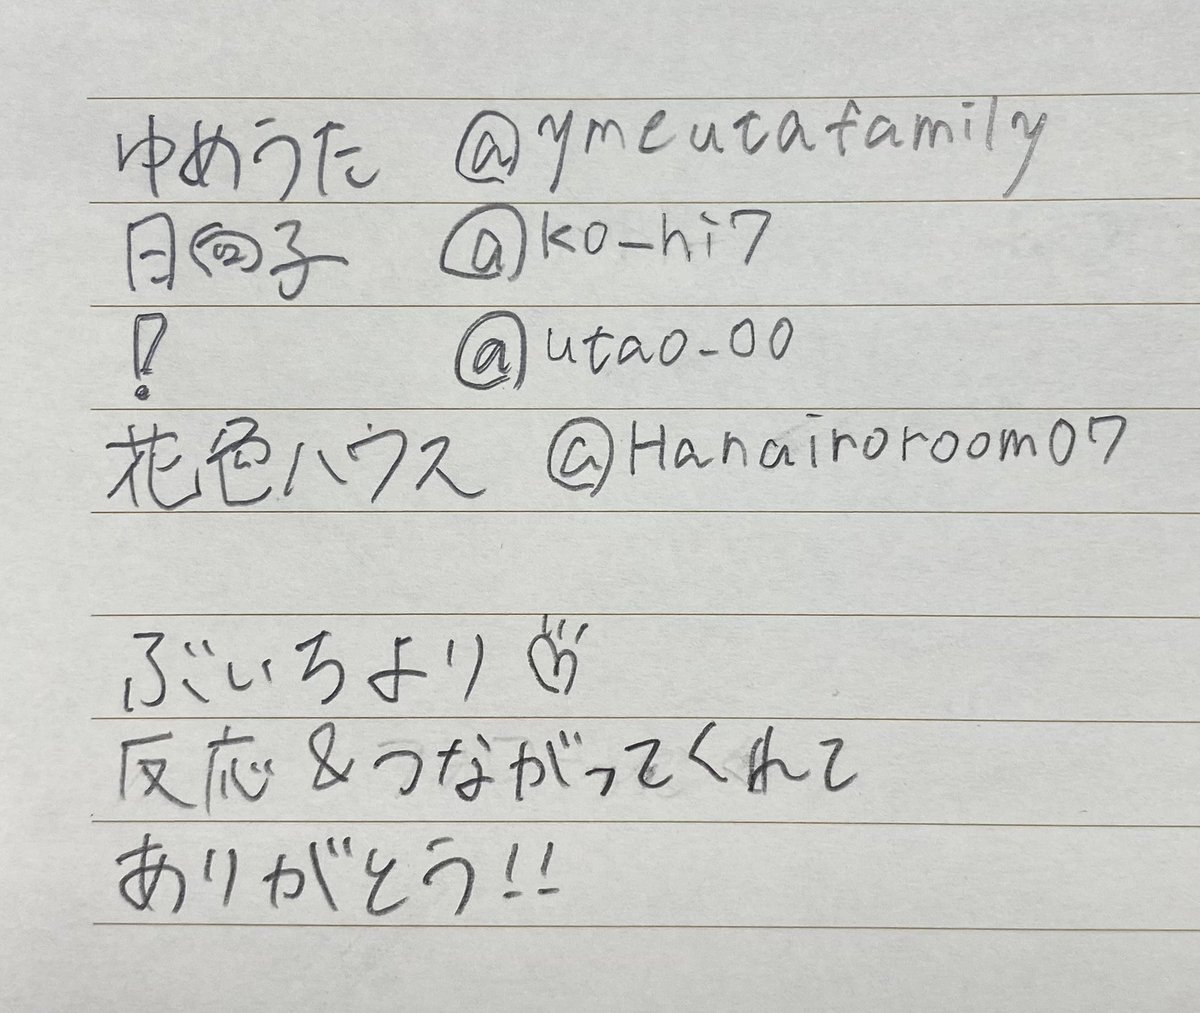 ゆめうた @ymeutafamily
日向子 @ko_hi7
! @utao_00
花色ハウス @Hanairoroom07
ぶいちより
反応&つながってくれて
ありがとう!!